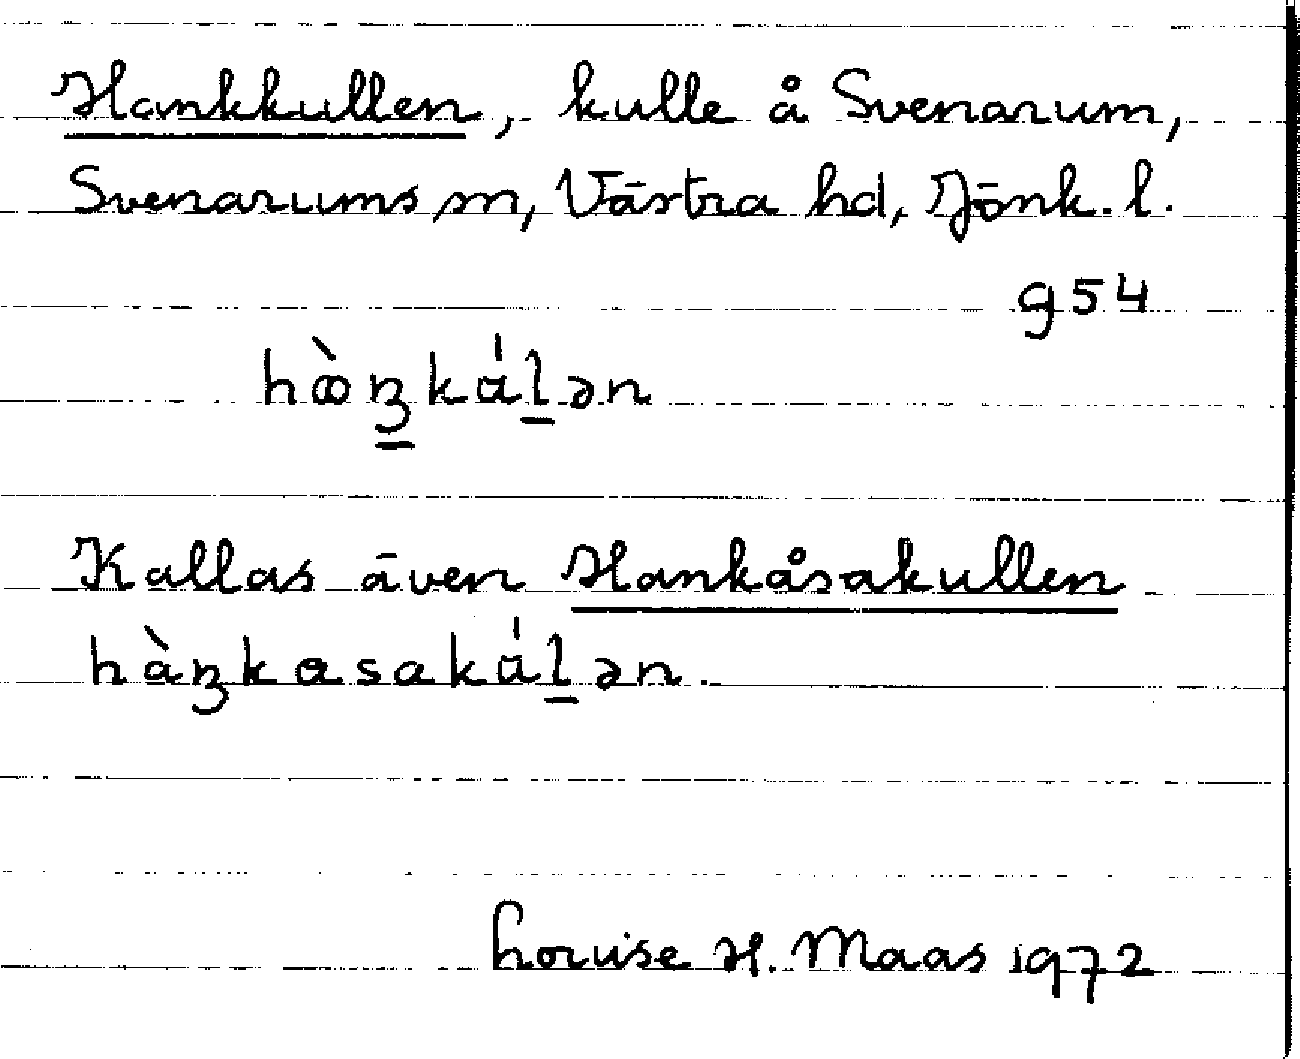 Hankkullen, kulle å Svenarum,
Svenarums sn, Västra hd, Jönk. l.
g54
hàŋkál̠ən
Kallas även Hankåsakullen
hàŋkasakál̠ən.
Louise H. Maas 1972